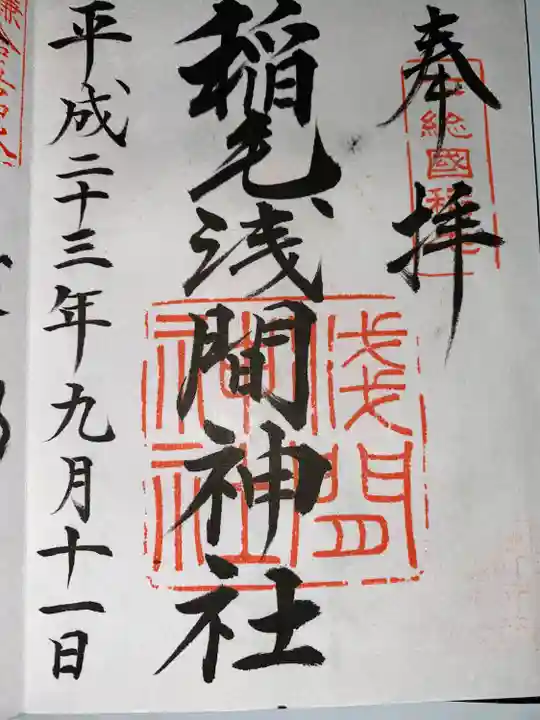 奉拝
下総國稲毛
稲毛浅間神社
淺間神社
平成二十三年九月十一日